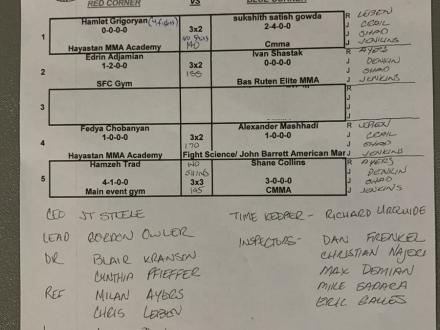 RED CORNER VS BLUE CORNER
Hamlet Grigoryan sukshith satish gowda R LEBEN
0-0-0-0 3x2 2-4-0-0 J CECIL
1 J SHAD
Hayastan MMA Academy 140 Cmma J JENKINS
Edrin Adjamian Ivan Shastak R AYERS
1-2-0-0 3x2 0-0-0-0 J DENKIN
2 155 J SHAD
SFC Gym Bas Ruten Elite MMA J JENKINS
R
3 J
J
J
Fedya Chobanyan Alexander Mashhadi R LEBEN
1-0-0-0 3x2 1-0-0-0 J CECIL
4 170 J SHAD
Hayastan MMA Academy Fight Science/ John Barrett American Mar J JENKINS
Hamzeh Trad NO Shane Collins R AYERS
SHINS J DENKIN
5 4-1-0-0 3x3 3-0-0-0 J SHAD
Main event gym 195 CMMA J JENKINS
CEO JT STEELE TIME KEEPER - RICHARD
LEAD GORDON OWLER INSPECTORS - DAN FRENKEL
DR BLAIR KRANSON CHRISTIAN NAJERI
CYNTHIA PFIEFFER MAX DEMIAN
REF MILAN AYERS MIKE
CHRIS LEBEN ERIC